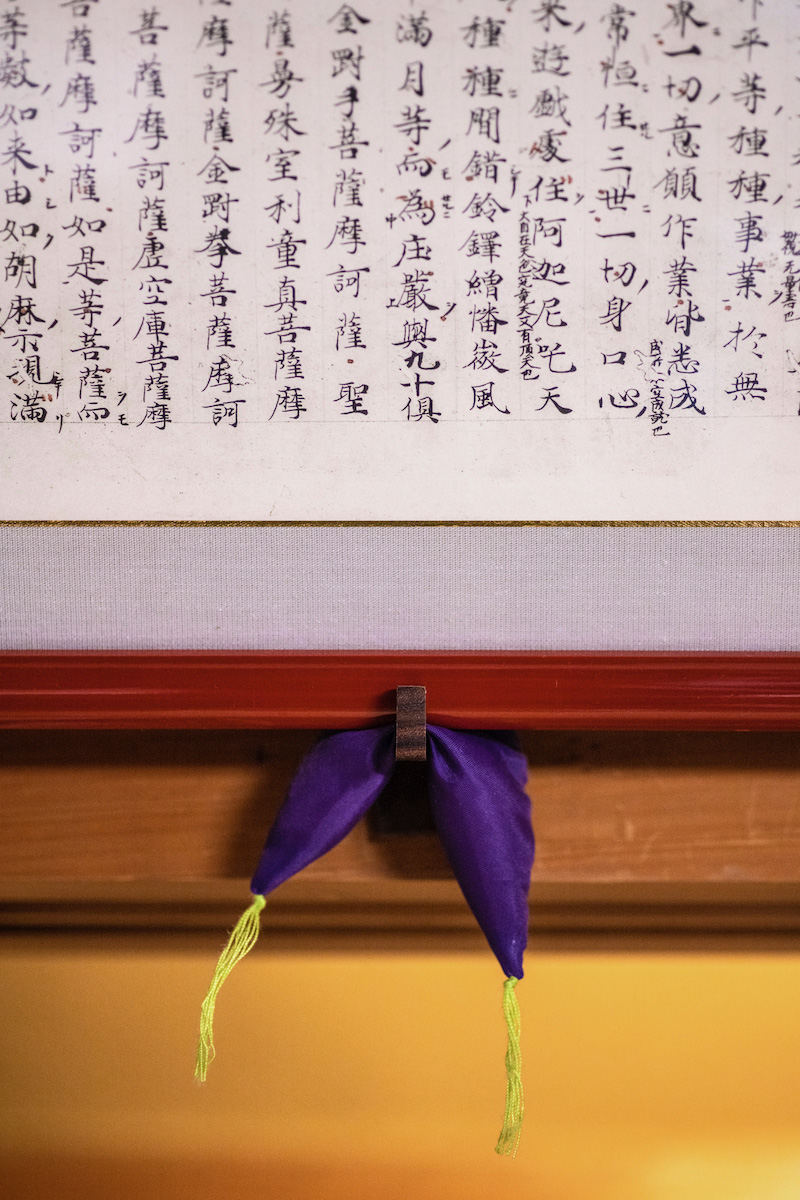 平等種種事業於無
界一切意願作業皆悉成
常恒住三世一切身口心
来遊戯處住阿迦尼吒天
大自在天色究竟天又有頂天也
種種間錯鈴鐸繒幡微風
滿月等而為庄嚴與九十俱
金剛手菩薩摩訶薩聖
薩曼殊室利童真菩薩摩
摩訶薩金剛拳菩薩摩訶
菩薩摩訶薩虛空庫菩薩摩
菩薩摩訶薩如是等菩薩而
等數如来由如胡麻示現滿